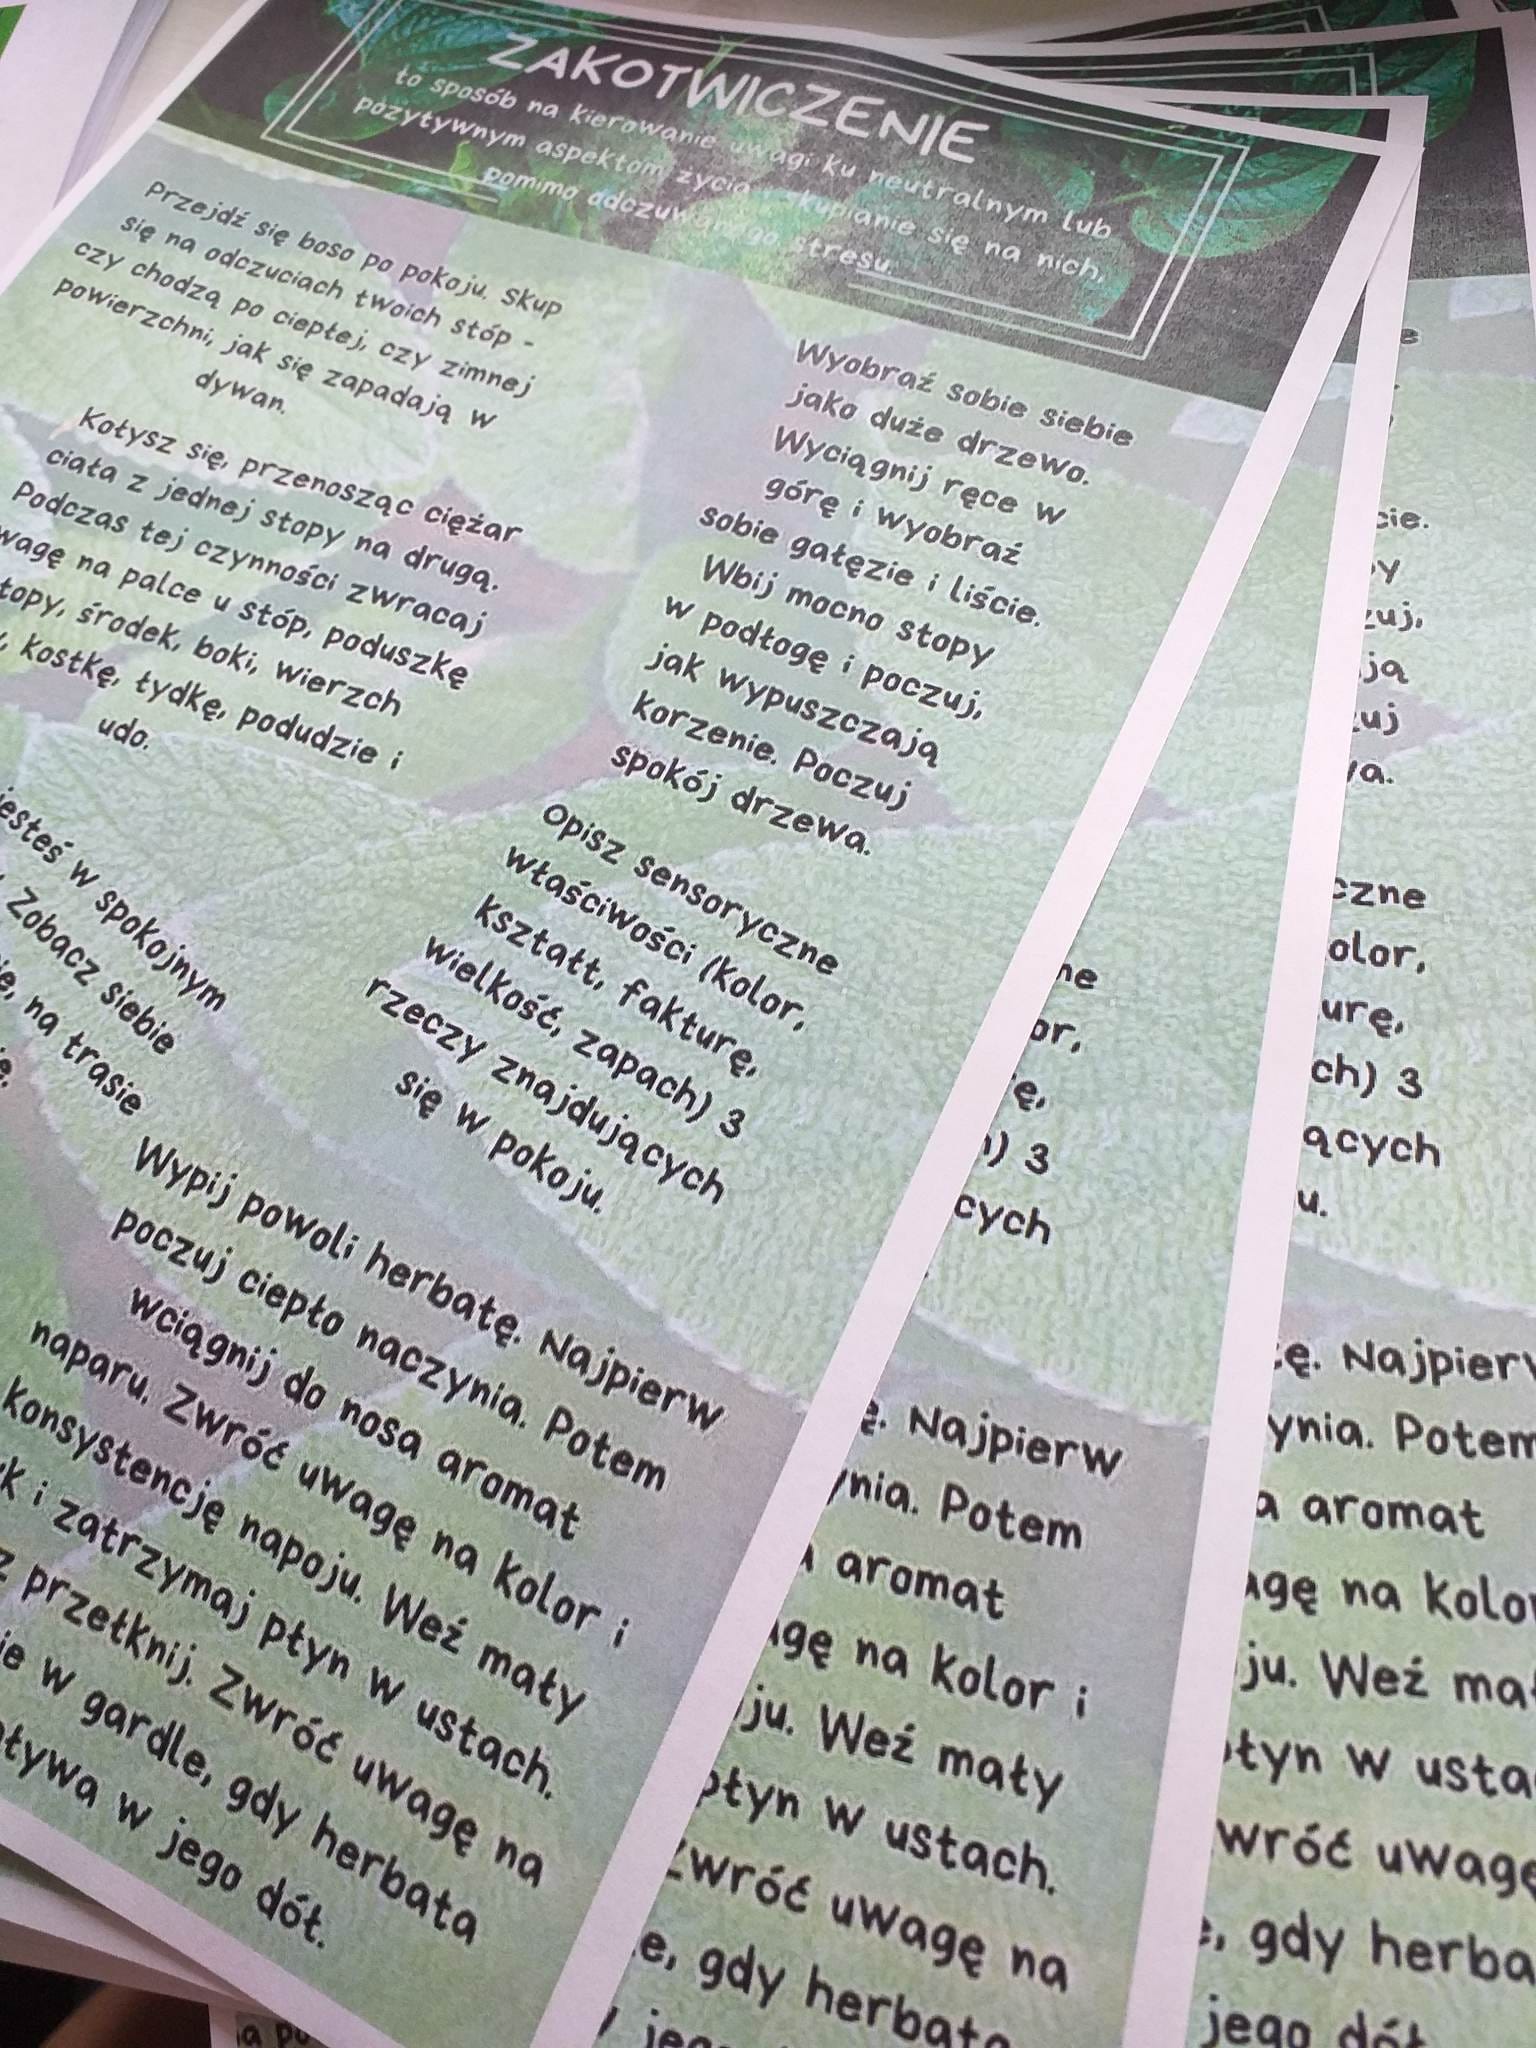 ZAKOTWICZENIE
to sposób na kierowanie uwagi ku neutralnym lub
pozytywnym aspektom życia i skupianie się na nich,
pomimo odczuwanego stresu.
Przejdź się boso po pokoju. Skup
się na odczuciach twoich stóp -
czy chodzą po ciepłej, czy zimnej
powierzchni, jak się zapadają w
dywan.
Kołysz się, przenosząc ciężar
ciała z jednej stopy na drugą.
Podczas tej czynności zwracaj
wagę na palce u stóp, poduszkę
topy, środek, boki, wierzch
, kostkę, łydkę, podudzie i
udo.
jesteś w spokojnym
Zobacz siebie
na trasie
Wyobraź sobie siebie
jako duże drzewo.
Wyciągnij ręce w
górę i wyobraź
sobie gałęzie i liście.
Wbij mocno stopy
w podłogę i poczuj,
jak wypuszczają
korzenie. Poczuj
spokój drzewa.
Opisz sensoryczne
właściwości (kolor,
kształt, fakturę,
wielkość, zapach) 3
rzeczy znajdujących
się w pokoju.
Wypij powoli herbatę. Najpierw
poczuj ciepło naczynia. Potem
wciągnij do nosa aromat
naparu. Zwróć uwagę na kolor i
konsystencję napoju. Weź mały
k i zatrzymaj płyn w ustach.
z przełknij. Zwróć uwagę na
ie w gardle, gdy herbata
ływa w jego dół.
ne
or,
ę,
) 3
cych
ę. Najpierw
ynia. Potem
aromat
agę na kolor i
ju. Weź mały
płyn w ustach.
Zwróć uwagę na
e, gdy herbata
cie.
y
zuj,
ją
zuj
wa.
czne
olor,
urę,
ch) 3
ących
u.
ę. Najpierw
ynia. Potem
a aromat
agę na kolo
ju. Weź ma
łyn w usta
wróć uwagę
, gdy herba
jego dół